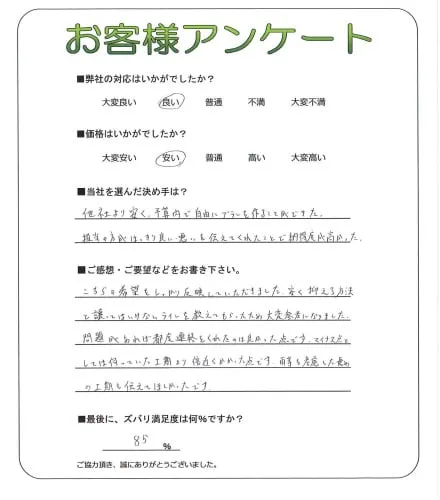 お客様アンケート
■弊社の対応はいかがでしたか？
大変良い 良い 普通 不満 大変不満
■価格はいかがでしたか？
大変安い 安い 普通 高い 大変高い
■当社を選んだ決め手は？
他社より安く、予算内で自由にプランを作ることができた。
担当の方がはっきり良い悪いを伝えてくれたことで納得度が高かった。
■ご感想・ご要望などをお書き下さい。
こちらの希望をしっかり反映していただきました。安く抑える方法
と譲ってはいけないラインを教えてもらったため大変参考になりました。
問題があれば都度連絡をくれたのは良かった点です。マイナス点と
しては伺っていた工期より倍近くかかった点です。雨季を考慮した長め
の工期も伝えてほしかったです。
■最後に、ズバリ満足度は何%ですか？
85 %
ご協力頂き、誠にありがとうございました。